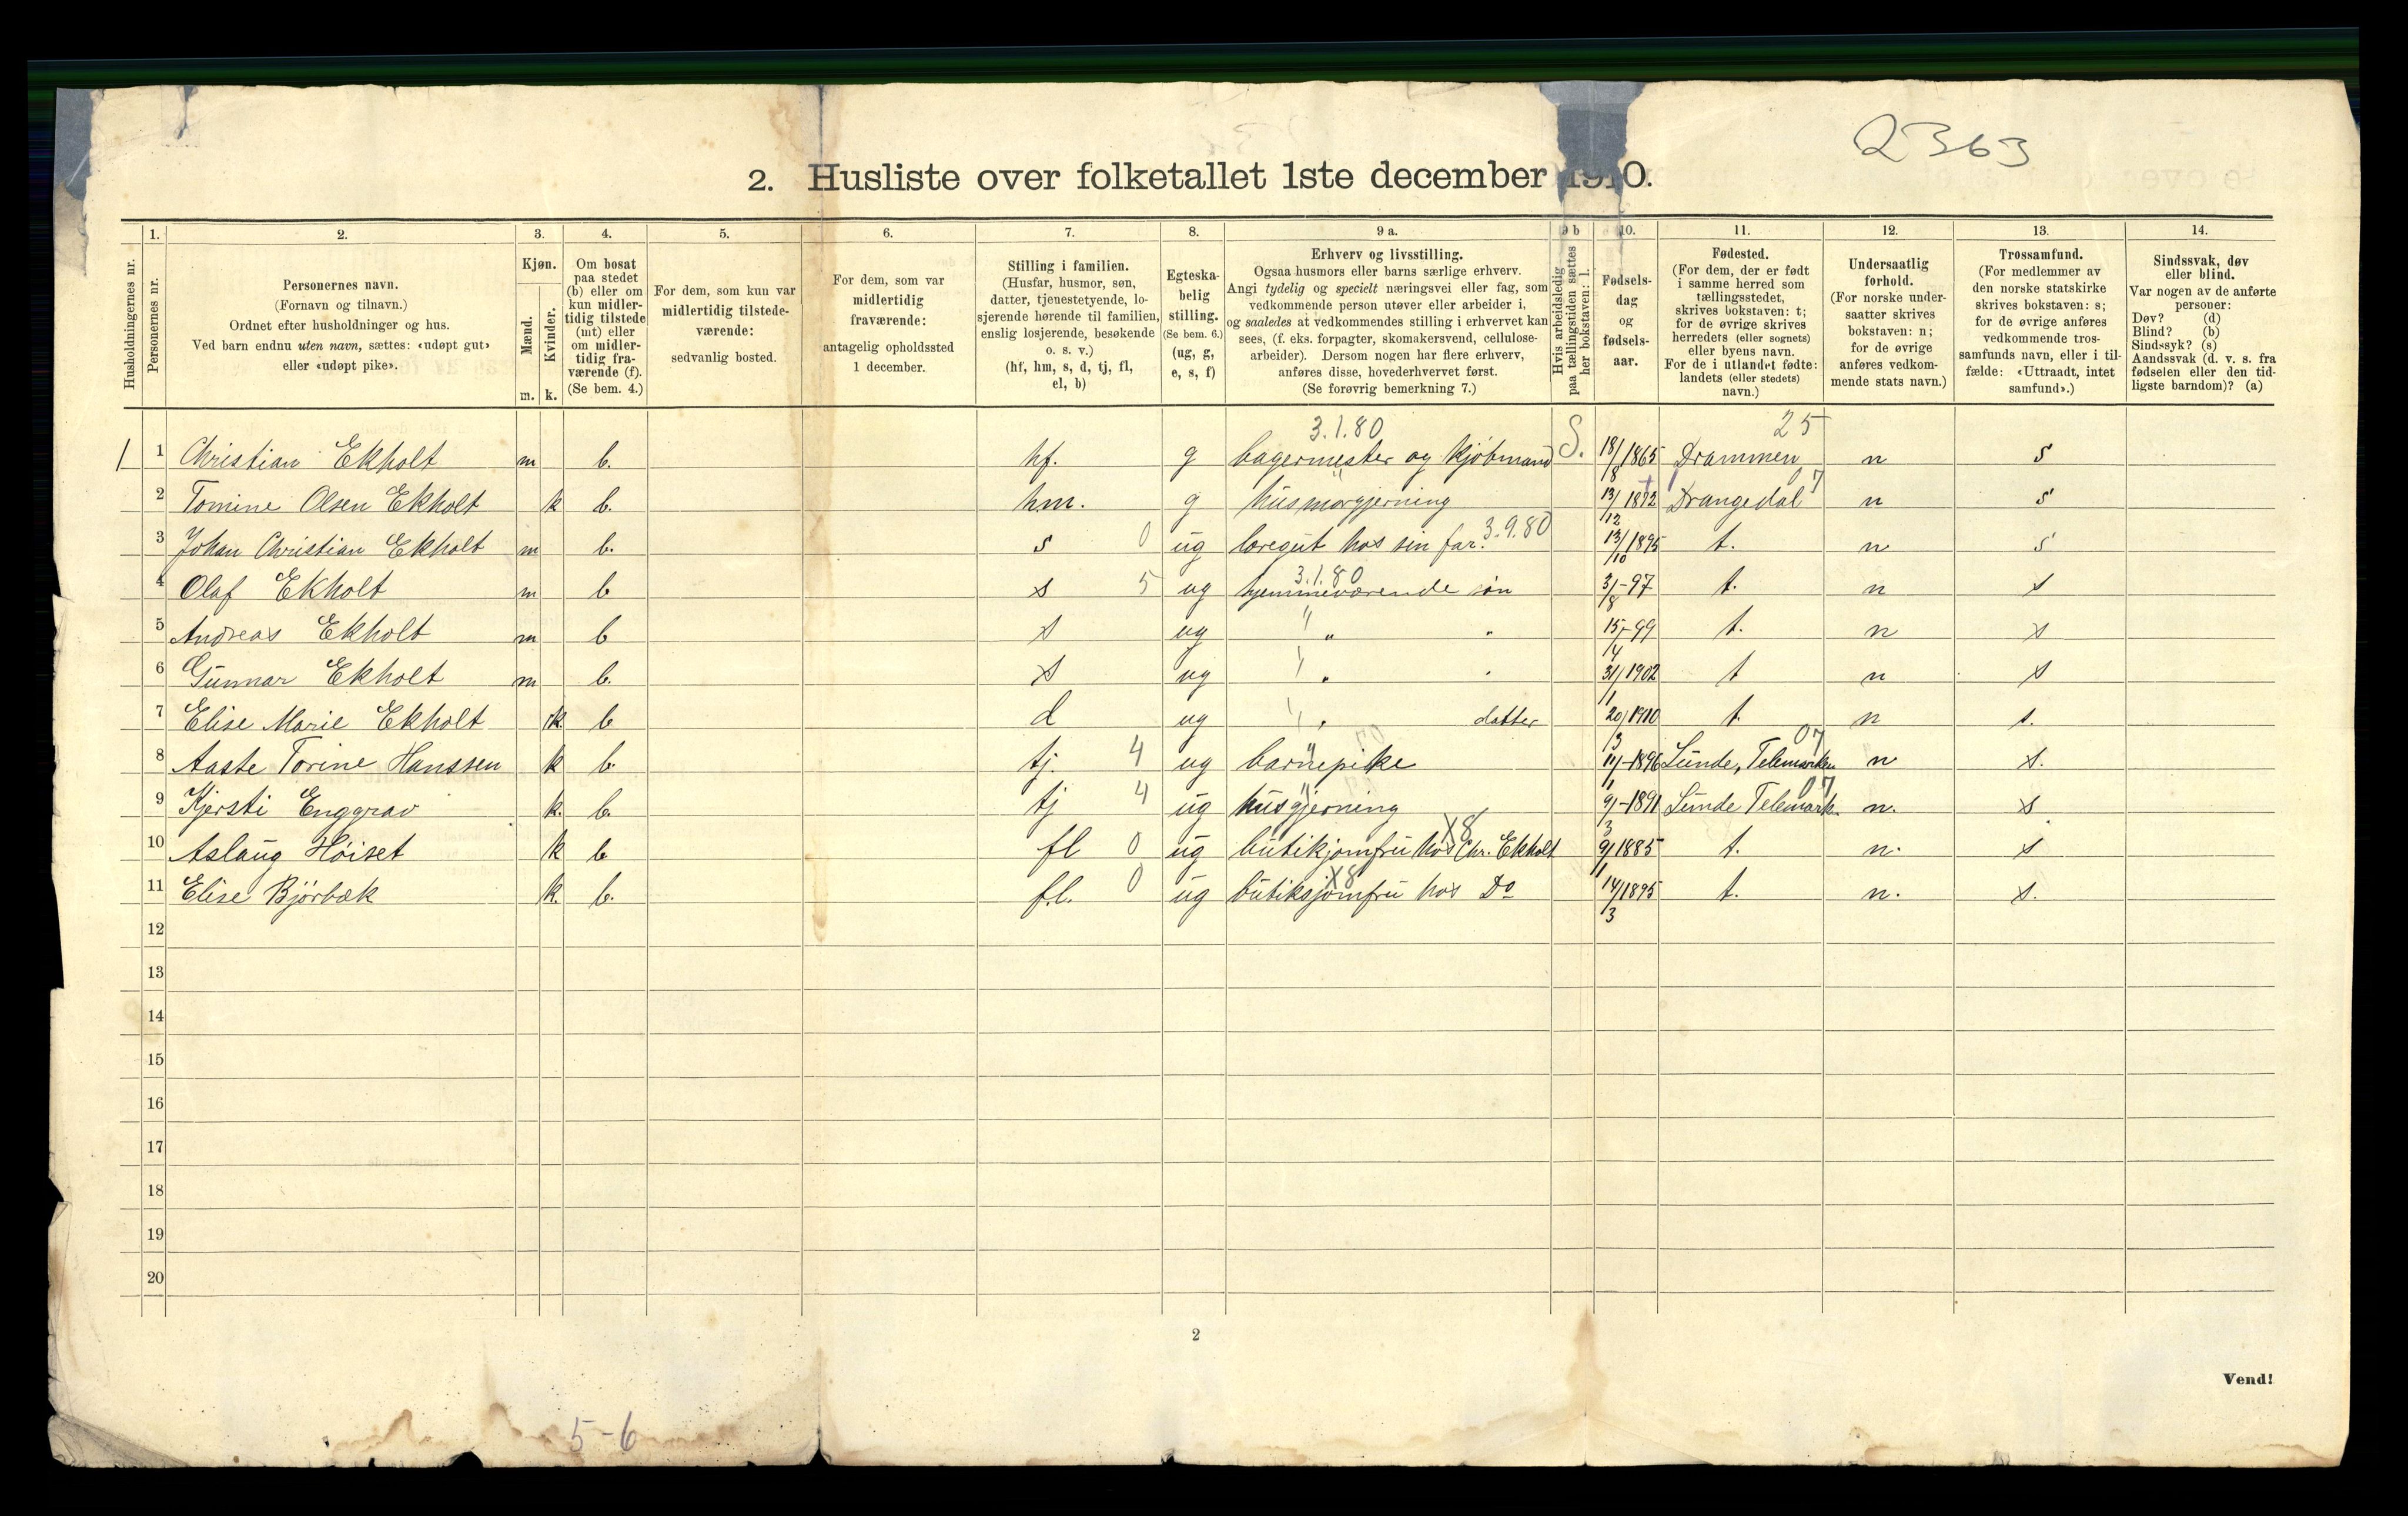 2363
2. Husliste over folketallet 1ste december 1910.
Husholdningernes nr.
1.
Personernes nr.
2.
Personernes navn.
(Fornavn og tilnavn.)
Ordnet efter husholdninger og hus.
Ved barn endnu uten navn, sættes: «udøpt gut»
eller «udøpt pike».
3.
Kjøn.
Mænd.
Kvinder.
m. k.
4.
Om bosat
paa stedet
(b) eller om
kun midler-
tidig tilstede
(mt) eller
om midler-
tidig fra-
værende (f).
(Se bem. 4.)
5.
For dem, som kun var
midlertidig tilstede-
værende:
sedvanlig bosted.
6.
For dem, som var
midlertidig
fraværende:
antagelig opholdssted
1 december.
7.
Stilling i familien.
(Husfar, husmor, søn,
datter, tjenestetyende, lo-
sjerende hørende til familien,
enslig losjerende, besøkende
o. s. v.)
(hf, hm, s, d, tj, fl,
el, b)
8.
Egteska-
belig
stilling.
(Se bem. 6.)
(ug, g,
e, s, f)
9 a.
Erhverv og livsstilling.
Ogsaa husmors eller barns særlige erhverv.
Angi tydelig og specielt næringsvei eller fag, som
vedkommende person utøver eller arbeider i,
og saaledes at vedkommendes stilling i erhvervet kan
sees, (f. eks. forpagter, skomakersvend, cellulose-
arbeider). Dersom nogen har flere erhverv,
anføres disse, hovederhvervet først.
(Se forøvrig bemerkning 7.)
9 b
Hvis arbeidsledig
paa tællingstiden sættes
her bokstaven: l.
10.
Fødsels-
dag
og
fødsels-
aar.
11.
Fødested.
(For dem, der er født
i samme herred som
tællingsstedet,
skrives bokstaven: t;
for de øvrige skrives
herredets (eller sognets)
eller byens navn.
For de i utlandet fødte:
landets (eller stedets)
navn.)
12.
Undersaatlig
forhold.
(For norske under-
saatter skrives
bokstaven: n;
for de øvrige
anføres vedkom-
mende stats navn.)
13.
Trossamfund.
(For medlemmer av
den norske statskirke
skrives bokstaven: s;
for de øvrige anføres
vedkommende tros-
samfunds navn, eller i til-
fælde: «Uttraadt, intet
samfund».)
14.
Sindssvak, døv
eller blind.
Var nogen av de anførte
personer:
Døv? (d)
Blind? (b)
Sindssyk? (s)
Aandssvak (d. v. s. fra
fødselen eller den tid-
ligste barndom)? (a)
3.1.80 25
1 1 Christian Ekholt m b. hf. g bagermester og kjöbmand S. 18/8 1865 Drammen n s
07
2 Tomine Olsen Ekholt k b. hm. g husmorgjerning 13/12 1872 Drangedal n s
3 Johan Christian Ekholt m b. s 0 ug læregut hos sin far. 3.9.80 13/10 1895 t. n s
3.1.80
4 Olaf Ekholt m b s 5 ug hjemmeværende søn 3/8-97 t. n s
5 Andreas Ekholt m b s ug " " " 15/4-99 t. n s
6 Gunnar Ekholt m b. s ug " " " 31/1 1902 t n s
7 Elise Marie Ekholt k b d ug " " datter 20/3 1910 t. n s.
07
8 Aaste Torine Hanssen k b. tj. 4 ug barnepike 11/1-1896 Lunde, Telemarken n s.
07
9 Kjersti Enggrav k. b. tj 4 ug husgjerning 9/3-1891 Lunde Telemark. n. s
X8
10 Aslaug Höiset k b fl 0 ug butikjomfru hos Chr. Ekholt 9/11 1885 t. n. s
X8
11 Elise Bjørbæk k. b. f.l. 0 ug butiksjomfru hos Do 14/3 1895 t. n. s.
12
13
14
15
16
17
18
19
20
2
Vend!
5-6